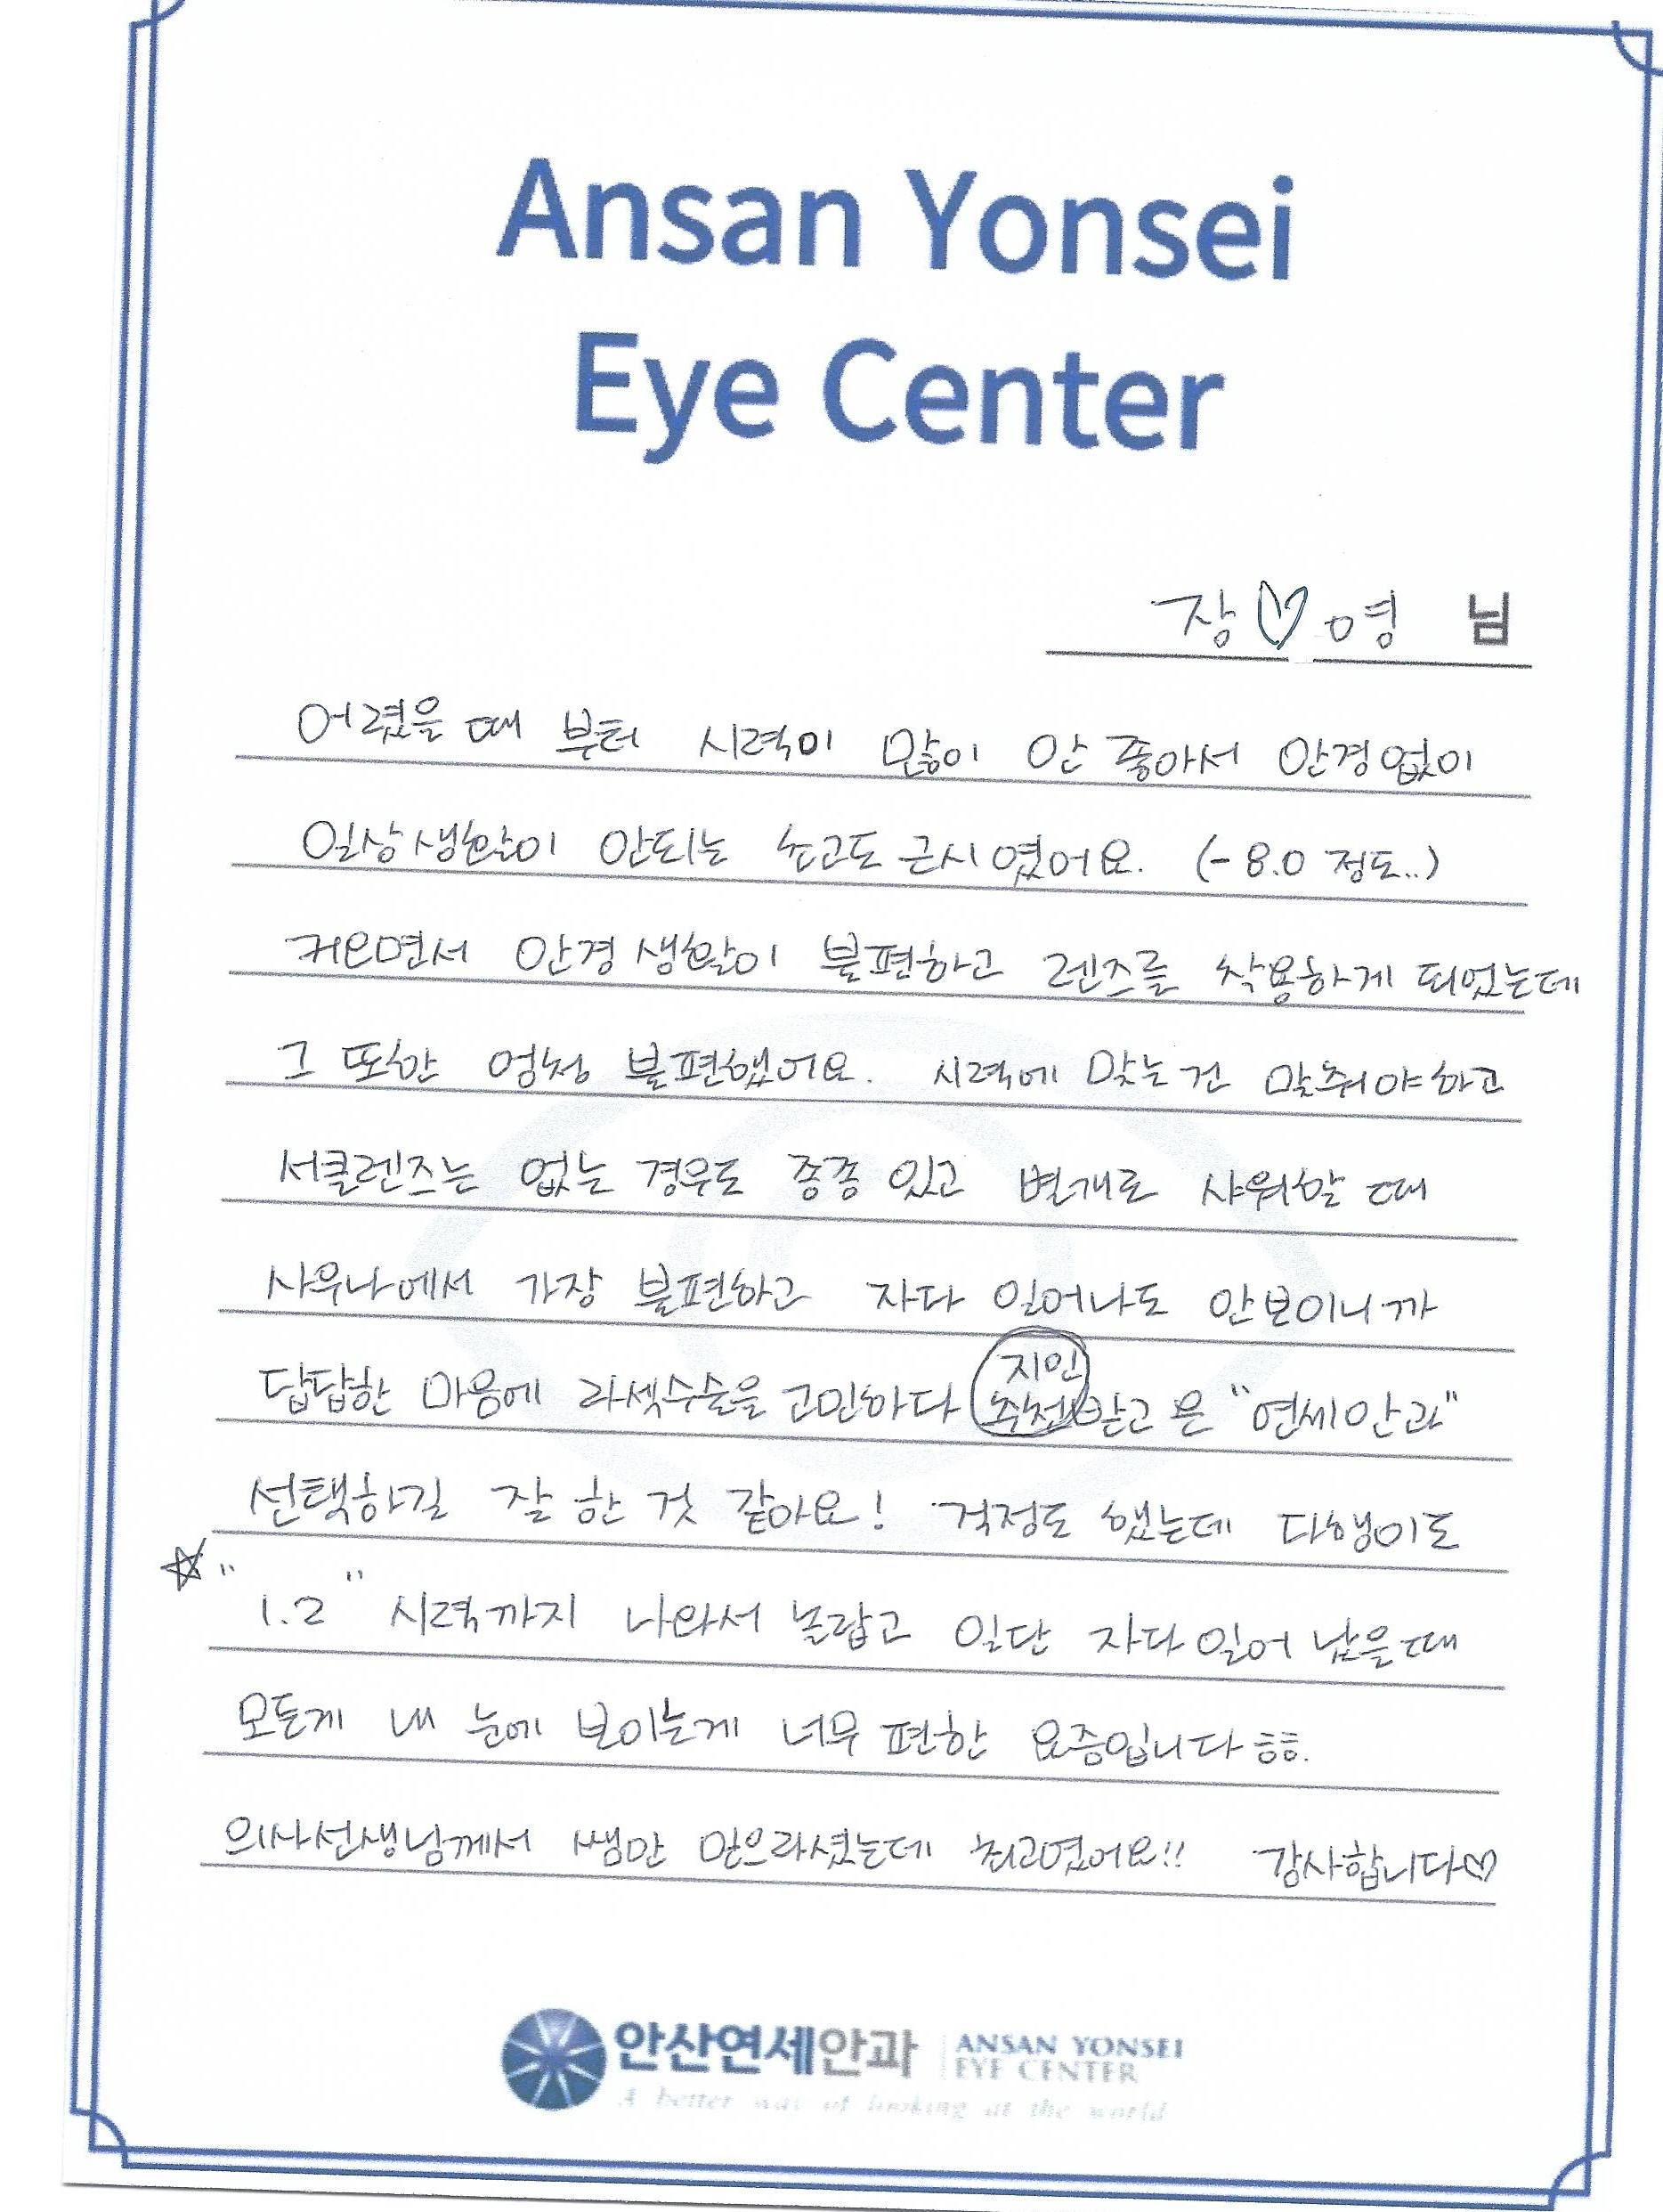 Ansan Yonsei
Eye Center
장♡영 님
어렸을 때 부터 시력이 많이 안 좋아서 안경없이
일상생활이 안되는 초고도 근시였어요. (-8.0 정도..)
커오면서 안경 생활이 불편하고 렌즈를 착용하게 되었는데
그 또한 엄청 불편했어요. 시력에 맞는건 맞춰야하고
서클렌즈는 없는 경우도 종종 있고 별개로 샤워할 때
사우나에서 가장 불편하고 자다 일어나도 안보이니까
답답한 마음에 라섹수술을 고민하다 지인 추천받고 온 "연세안과"
선택하길 잘 한 것 같아요! 걱정도 했는데 다행이도
☆"1.2" 시력까지 나와서 놀랍고 일단 자다 일어 났을때
모든게 내 눈에 보이는게 너무 편한 요즘입니다ㅎㅎ.
의사선생님께서 쌤만 믿으라셨는데 최고였어요!! 감사합니다♡
안산연세안과 ANSAN YONSEI
EYE CENTER
A better way of looking at the world